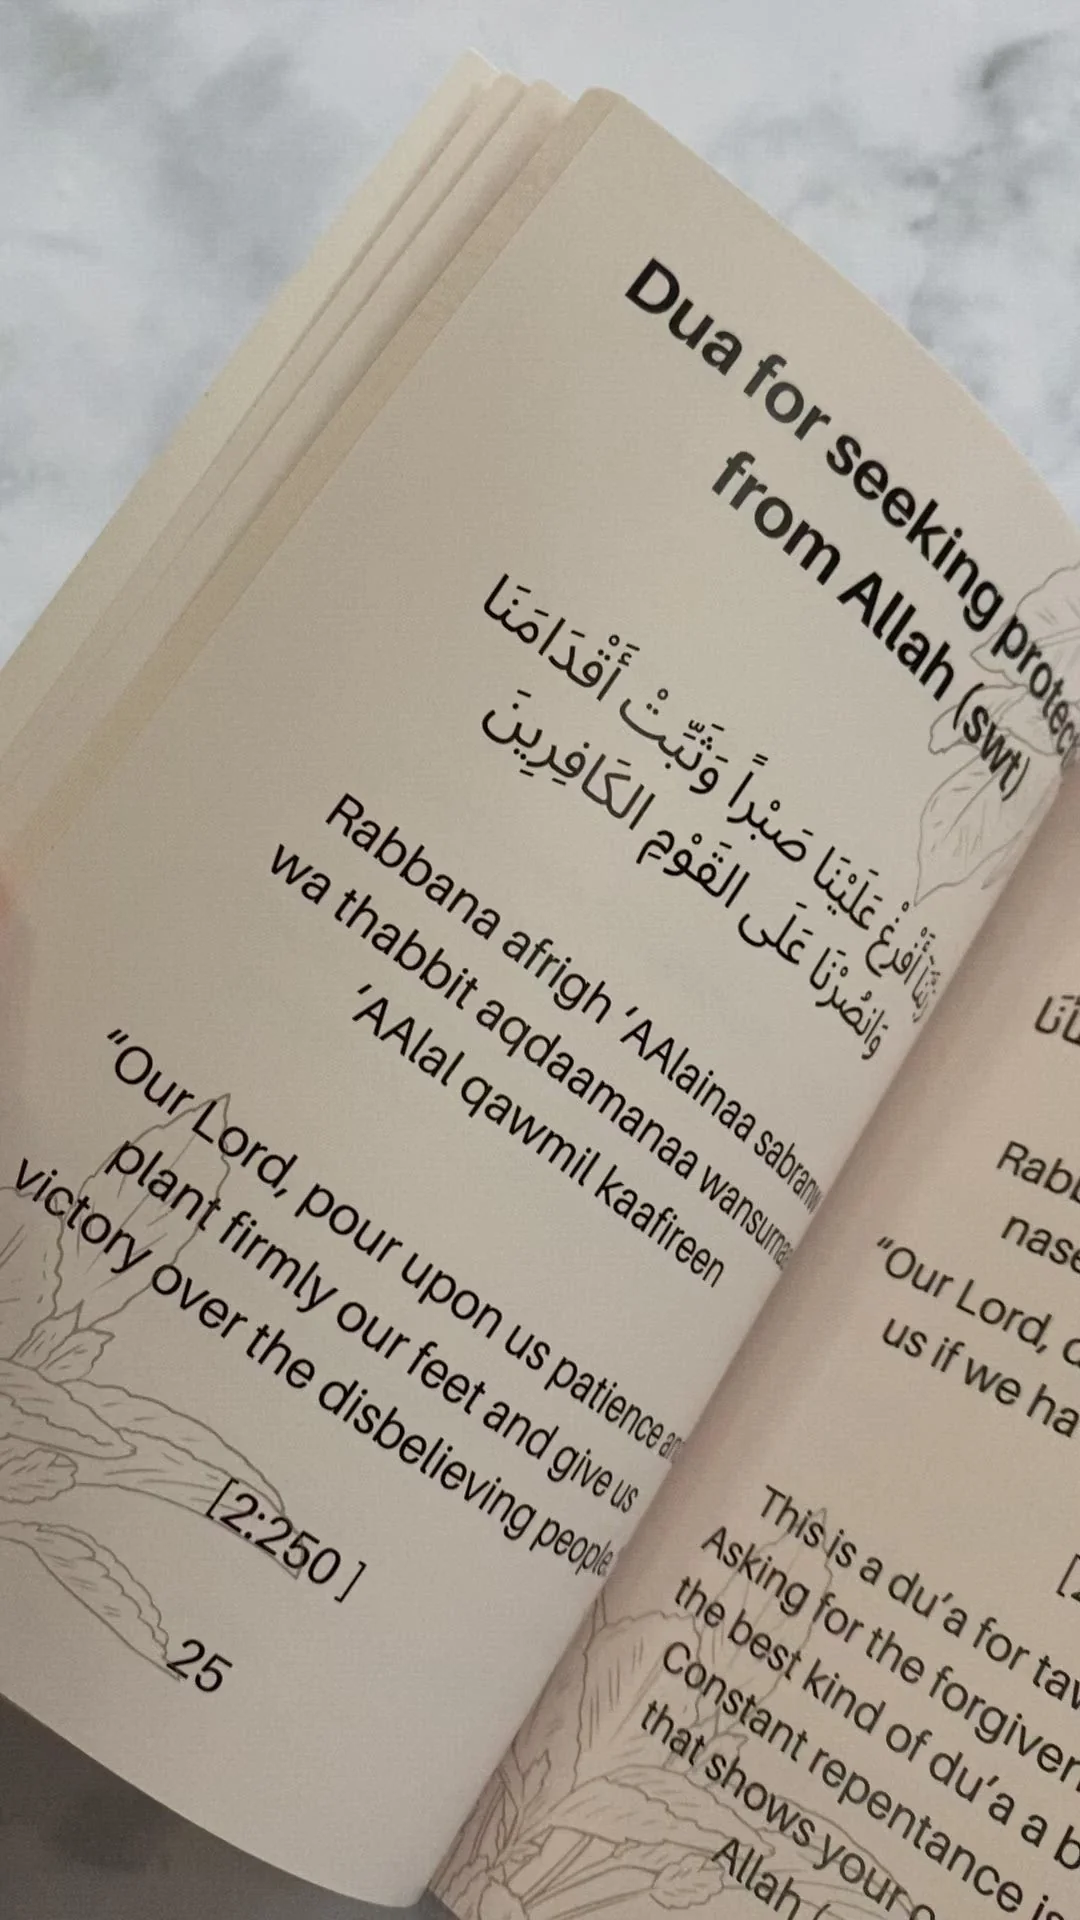 Dua for seeking
from Allah (swt)
رَبَّنَا أَفْرِغْ عَلَيْنَا صَبْراً وَثَبِّتْ أَقْدَامَنَا
وَانصُرْنَا عَلَى القَوْمِ الكَافِرِينَ
Rabbana afrigh ‘AAlainaa
wa thabbit aqdaamanaa
‘AAlal qawmil kaafireen
“Our Lord, pour upon us patience
plant firmly our feet and give us
victory over the disbelieving people
[2:250 ]
25
“Our Lord,
us if we
This is a du’a for
Asking for the
the best kind of du’a a
Constant repentance is
that shows your
Allah